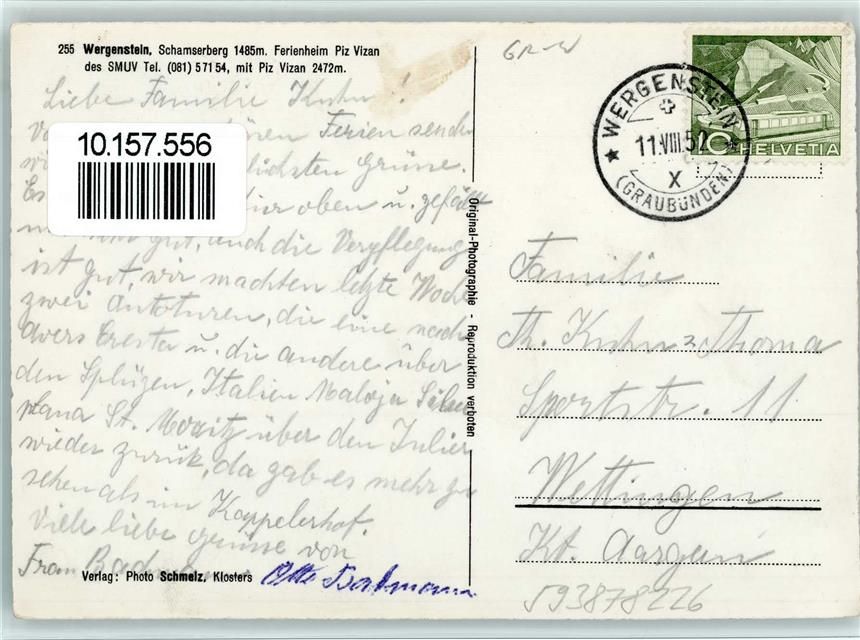 255 Wergenstein, Schamserberg 1485m. Ferienheim Piz Vizan
des SMUV Tel. (081) 5 71 54, mit Piz Vizan 2472m.
Liebe Familie Kuhn!
Ferien senden
Grüsse.
Es hier oben u. gefällt
gut, auch die Verpflegung
ist gut, wir machten letzte Woche
zwei Autoturen, die eine nach
Avers Cresta u. die andere über
den Splügen, Italien Maloja Sils
plana St. Moritz über den Julier
wieder zurük, da gab es mehr zu
sehen als im Kappelerhof.
Viele liebe grüsse von
Fram
Otto Bachmann
Verlag: Photo Schmelz, Klosters
10.157.556
Original-Photographie - Reproduktion verboten
GR-W
WERGENSTEIN
11.VIII.52
X
(GRAUBÜNDEN)
10 HELVETIA
Familie
Th. Kuhn=Thoma
Sportstr. 11
Wettingen
Kt. Aargau
593878226